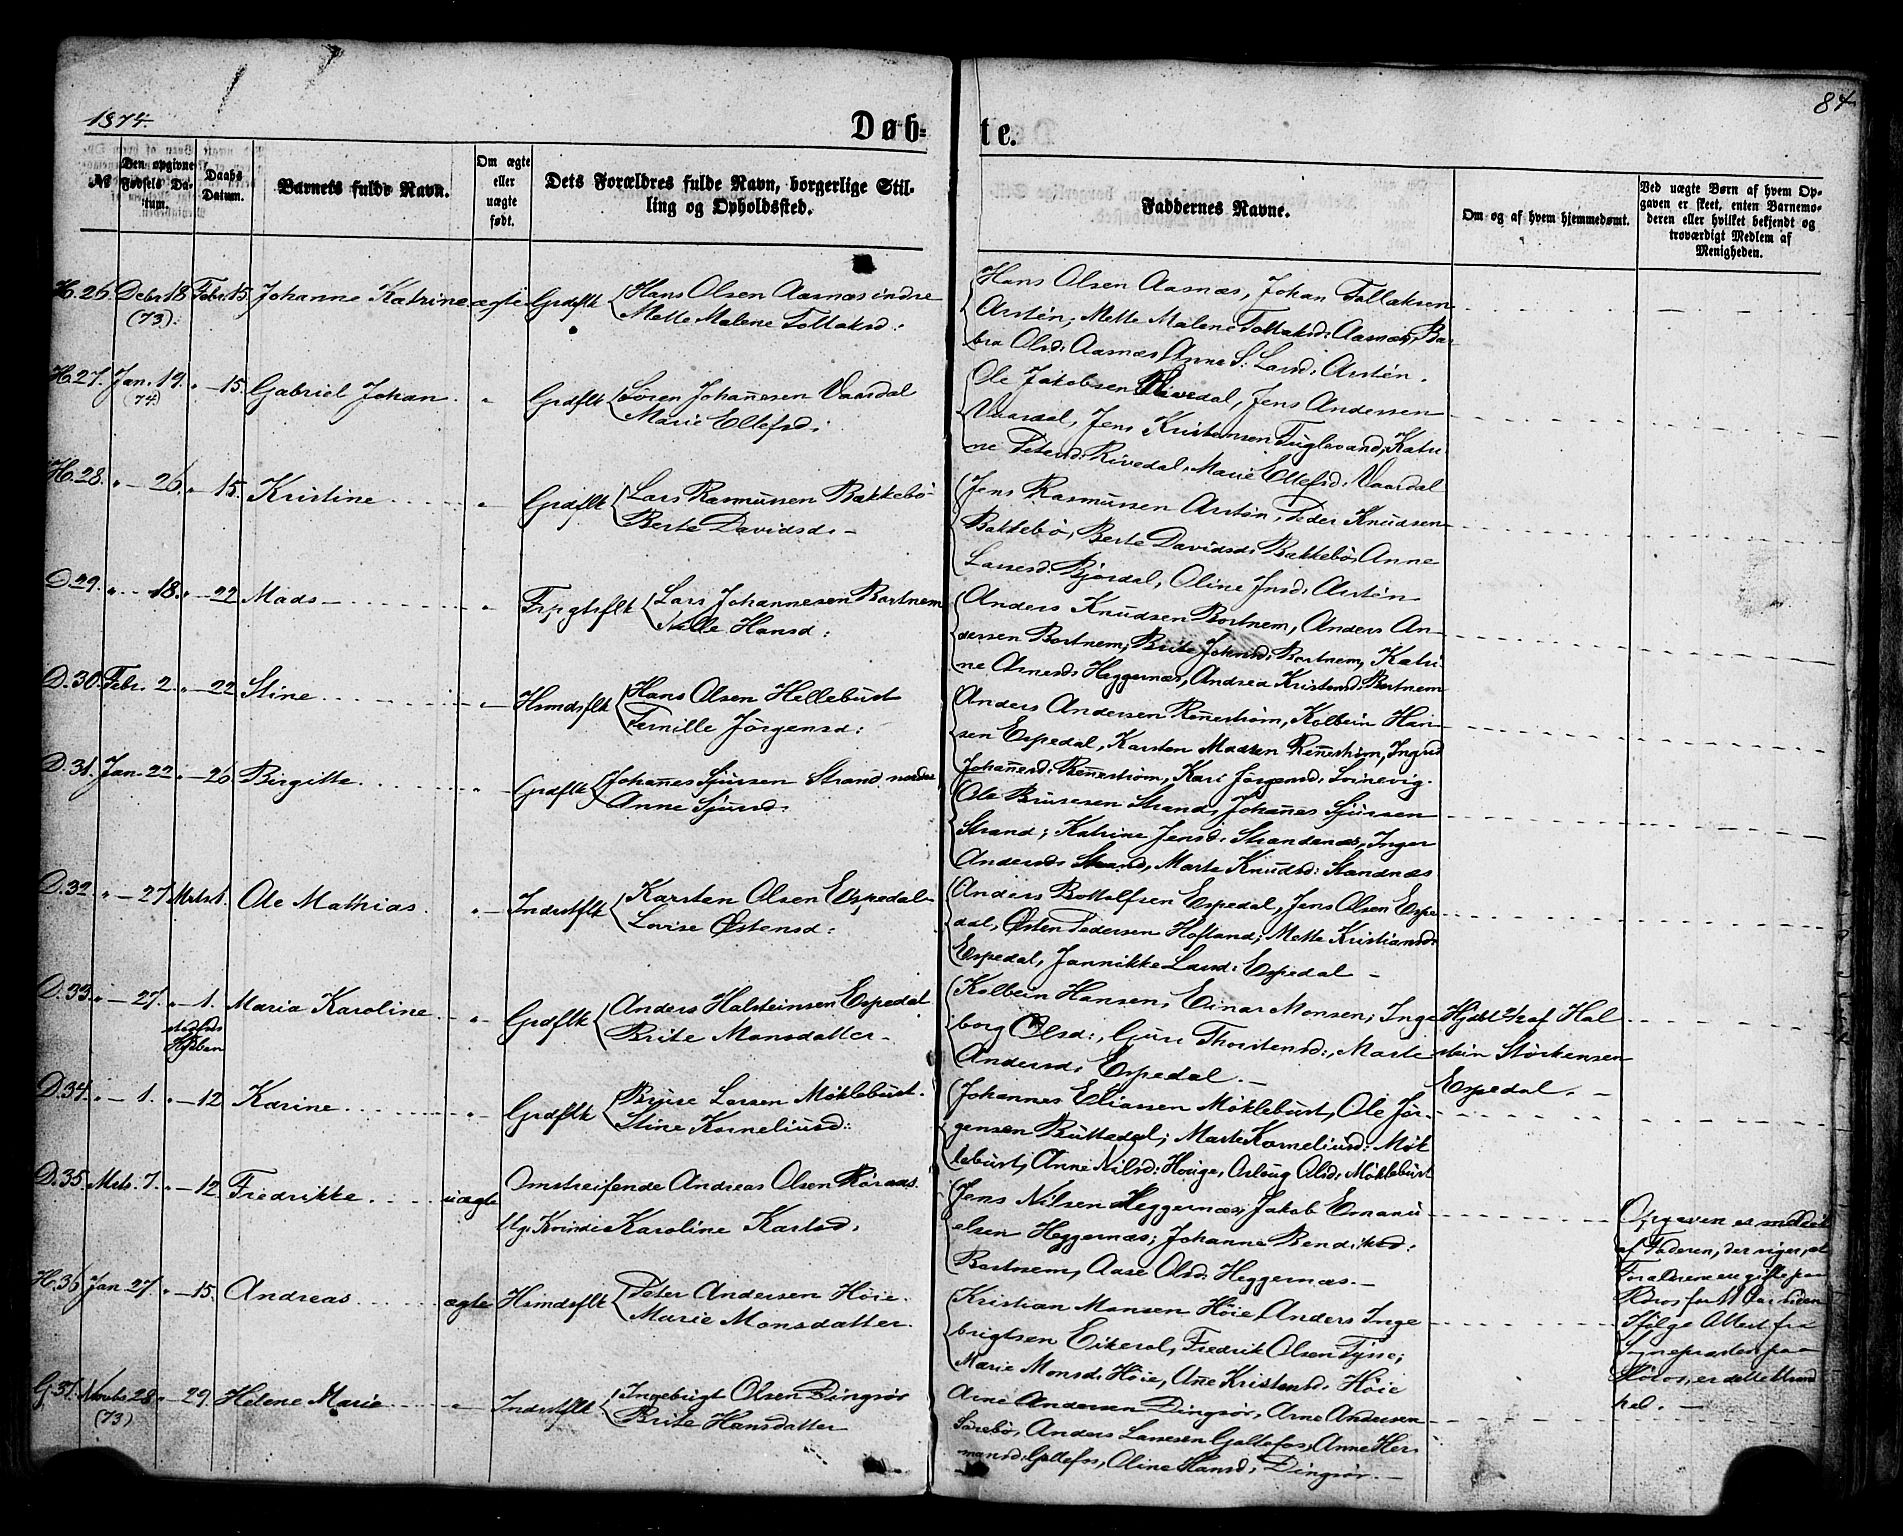 1874.
Døb-
te.
84
№
Den opgivne Fødsels Da-tum.
Daabs Datum.
Barnets fulde Navn.
Om ægte eller uægte født.
Dets Forældres fulde Navn, borgerlige Stil-
ling og Opholdssted.
Faddernes Navne.
Om og af hvem hjemmedøbt.
Ved uægte Børn af hvem Op-
gaven er skeet, enten Barnemo-
deren eller hvilket bekjendt og
troværdigt Medlem af
Menigheden.
H. 26. Debr 18 (73): Febr. 15. Johanne Katrine ægte Grdflk Hans Olsen Aasnæs indre
Mette Malene Tollaksd:
Hans Olsen Aasnæs, Johan Tollaksen
Arstén; Mette Malene Tollaksd: Aasnæs, Bar-
bra Olsd: Aasnæs, Anne S. Larsd: Arstén.
H. 27. Jan. 19. (74.) " — 15. Gabriel Johan " Grdflk Søren Johañesen Vaardal
Marie Ellefsd:
Ole Jakobsen Rivedal, Jens Andersen
Vaardal, Jens Kristensen Fuglevand, Katri-
ne Petersd: Rivedal, Marie Ellefsd: Vaardal
H. 28. " — 26. " — 15. Kristine " Grdflk Lars Rasmussen Bakkebö
Berte Davidsd. —
Jens Rasmussen Arstén, Peder Knudsen
Bakkebö, Berte Davidsd: Bakkebö, Anne
Larsesd. Björdal, Oline Jnsd: Arstén
D. 29. " — 18. " — 22 Mads — " Lars Johannesen Bortnem
Nille Hansd:
Anders Knudsen Bortnem, Anders An-
dersen Bortnem; Brite Johnsd: Bortnem, Katri-
ne Arnesd: Heggernæs, Andrea Kristensd: Bortnem
D. 30. Febr. 2. " — 22 Stine " Hsmdsflk Hans Olsen Hellebust
Pernille Jörgensd:
Anders Andersen Reñestrøm, Kolbein Han-
sen Espedal, Karsten Madsen Reñestrøm, Ingrid
Johañesd: Reñestrøm, Kari Jörgensd: Svinevig.
D. 31. Jan. 22 " — 26 Birgitte " Grdflk Johañes Sjursen Strand nordre
Anne Sjursd.
Ole Brusesen Strand, Johañes Sjursen
Strand; Katrine Jensd: Strandenæs, Inger
Andersd: Strand, Marte Knudsd: Standnæs
D. 32 " — 27 Mrts 1. Ole Mathias " Indrstflk Karsten Olsen Espedal
Lovise Østensd:
Anders Bottolfsen Espedal, Jens Olsen Espe-
dal, Østen Pedersen Hofland; Mette Kristiansd:
Espedal, Jannikke Larsd: Espedal —
D. 33. " — 27. " — 1. Maria Karoline " Grdflk Anders Halsteinsen Espedal
Brite Monsdatter —
Kolbein Hansen, Einar Monsen; Inge-
borg Olsd:, Guri Thorstensd:, Marte
Andersd: Espedal. —
Hjdbt 2/2 af Hal-
stein Störkensen
Espedal. —
D. 34. " — 1. " — 12 Karine " Grdflk Brüse Larsen Möklebust.
Stine Korneliusd:
Johannes Eliassen Möklebust, Ole Jör-
gensen Buttedal; Marte Korneliusd: Mök-
lebust, Anne Nilsd: Houge, Aslaug Olsd: Möklebust
D. 35. Mrts. 7. " — 12. Fredrikke uægte Omstreifende Andreas Olsen Röraas.
Ug. Kvinde Karoline Karlsd.
Jens Nilsen Heggernæs; Jakob Emanu-
elsen Heggernæs; Johanne Bendiksd:
Bortnem, Aase Olsd: Heggernæs. —
Opgaven er meddelt
af Faderen, der siger, at
Forældrene ere gifte paa
Röros for 11 Aar siden
Ifølge Attest fra
Sognepresten paa
Röros, er dette urund
hed. —
H. 36 Jan 27 " — 15. Andreas ægte Hsmdsflk Peter Andersen Höie.
Marie Monsdatter.
Kristian Monsen Höie, Anders Inge-
brigtsen Eikerol, Fredrik Olsen Tysse;
Marie Monsd: Höie, Añe Kristensd: Höie
G. 37. Novbr 28 (73) " — 29. Helene Marie " Indrstflk Ingebrigt Olsen Dingsör
Brite Hansdatter
Arne Andersen Dingsör, Arne Andersen
Sörebö, Anders Larsesen Galtefos, Anne Her-
mansd: Galtefos, Oline Hansd: Dingsör. —